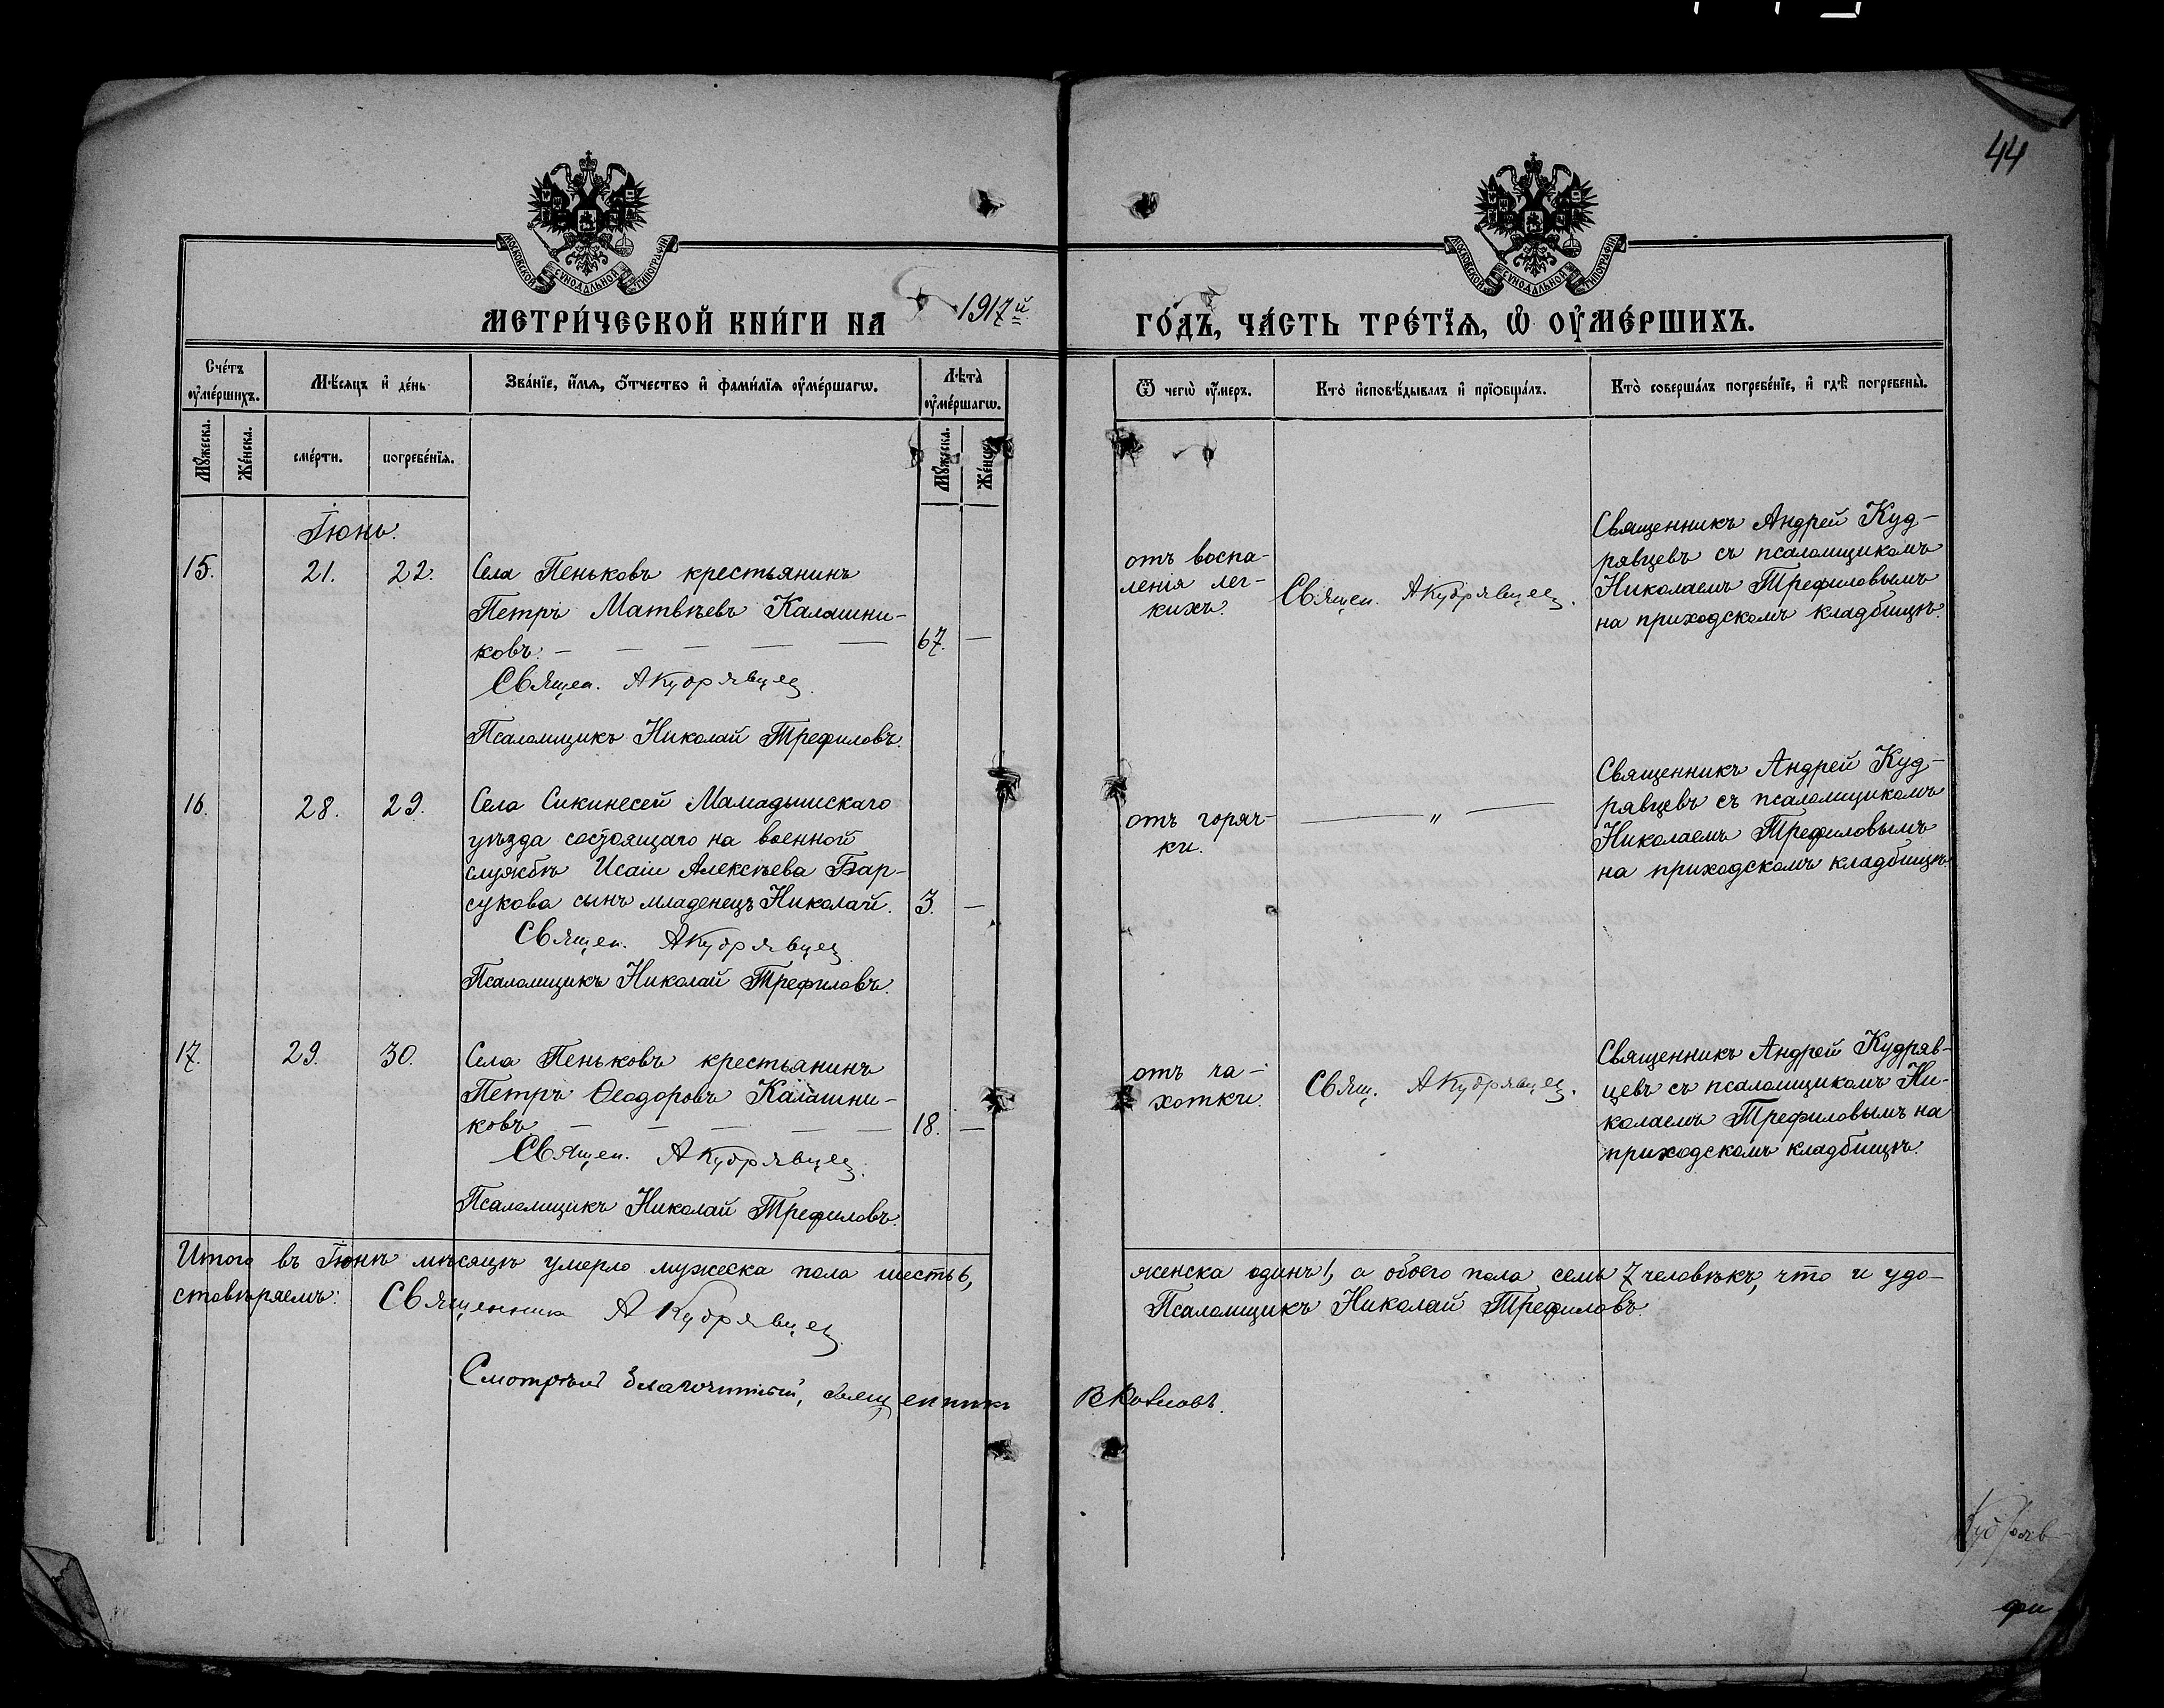 44
МОСКОВСКОЙ СѴНОДАЛЬНОЙ ТИПОГРАФІИ
МОСКОВСКОЙ СѴНОДАЛЬНОЙ ТИПОГРАФІИ
МЕТРИ́ЧЕСКОЙ КНИ́ГИ НА 1917й ГО́ДЪ, ЧА́СТЬ ТРЕ́ТЇѦ, Ѽ ОУ҆МЕ́РШИХЪ.
Счётъ оу҆ме́ршихъ.
Мѣ́сяцъ и҆ де́нь
Зва́нїе, и҆́мѧ, ѻ҆́тчество и҆ фами́лїѧ оу҆ме́ршагѡ.
Лѣ́та оу҆ме́ршагѡ.
Ѿ чегѡ̀ оу҆́меръ.
Кто̀ и҆сповѣ́дывалъ и҆ прїѡбща́лъ.
Кто̀ соверша́лъ погребе́нїе, и҆ гдѣ̀ погребены̀.
Мꙋ́жеска. Же́нска. сме́рти. погребе́нїѧ. Мꙋ́жеска. Же́нска.
Іюнь.
15. 21. 22.
Села Пеньковъ крестьянинъ
Петръ Матвѣевъ Калашни-
ковъ. — — — — — 67. —
Священ. АКудрявцев.
Псаломщикъ Николай Трефиловъ.
отъ воспа-
ленія лег-
кихъ.
Священ. АКудрявцев.
Священникъ Андрей Куд-
рявцевъ съ псаломщикомъ
Николаемъ Трефиловымъ
на приходскомъ кладбищѣ.
16. 28. 29.
Села Сикинесей Мамадышскаго
уѣзда состоящаго на военной
службѣ Исаіи Алексѣева Бар-
сукова сынъ младенецъ Николай. 3. —
Священ. АКудрявцев.
Псаломщикъ Николай Трефиловъ.
отъ горяч-
ки.
— „ —
Священникъ Андрей Куд-
рявцевъ съ псаломщикомъ
Николаемъ Трефиловымъ
на приходскомъ кладбищѣ
17. 29. 30.
Села Пеньковъ крестьянинъ
Петръ Ѳеодоровъ Калашни-
ковъ — — — — — 18. —
Священ. АКудрявцев.
Псаломщикъ Николай Трефиловъ.
отъ ча-
хотки.
Свящ. АКудрявцев.
Священникъ Андрей Кудряв-
цевъ съ псаломщикомъ Ни-
колаемъ Трефиловымъ на
приходскомъ кладбищѣ.
Итого въ Іюнѣ мѣсяцѣ умерло мужеска пола шесть 6, женска одинъ 1, а обоего пола семь 7 человѣкъ, что и удо-
стовѣряемъ: Священник АКудрявцев. Псаломщикъ Николай Трефиловъ.
Смотрѣлъ Благочинный, священникъ
Кудряв-
фи